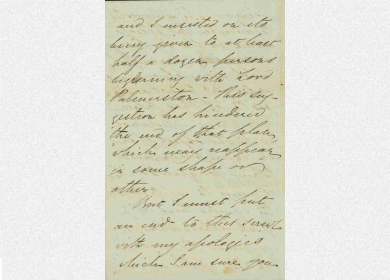 and I insisted on its
being given to at least
half a dozen persons
beginning with Lord
Palmerston – This sug-
gestion has hindered
the end of that plan
which may reappear
in some shape or
other
But I must put
an end to this
with my apologies
which I am sure you